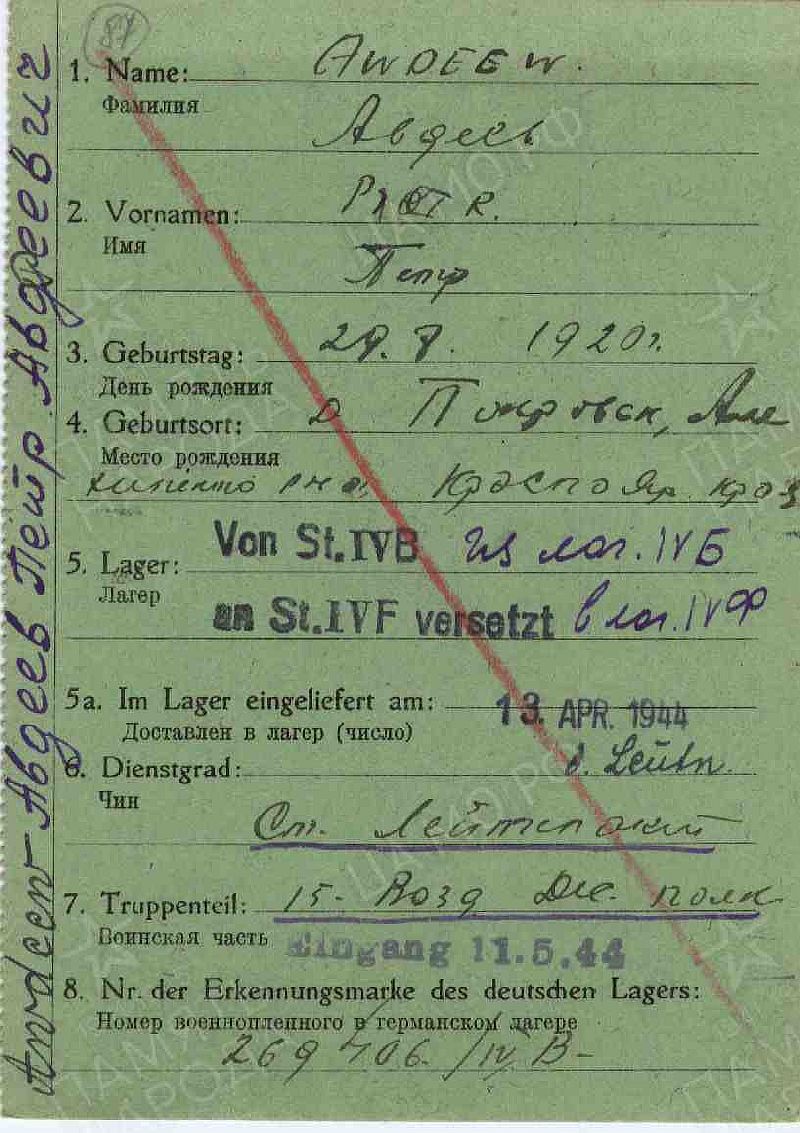 81
1. Name: AWDEEW.
Фамилия
Авдеев
2. Vornamen: PIOTR.
Имя
Петр
3. Geburtstag: 29. 8. 1920г.
День рождения
4. Geburtsort: Д Покровск, Але
Место рождения
Краснояр. край
5. Lager: Von St.IVB из лаг. IVБ
Лагер
an St.IVF versetzt в лаг. IVФ
5a. Im Lager eingeliefert am: 13. APR. 1944
Доставлен в лагер (число)
6. Dienstgrad: Leutn.
Чин
Ст. Лейтенант
7. Truppenteil: 15- Возд Дес. полк
Воинская часть Eingang 11.5.44
8. Nr. der Erkennungsmarke des deutschen Lagers:
Номер военнопленного в германском лагере
269406. /IV B-
Awdeew-Авдеев Пётр Авдеевич